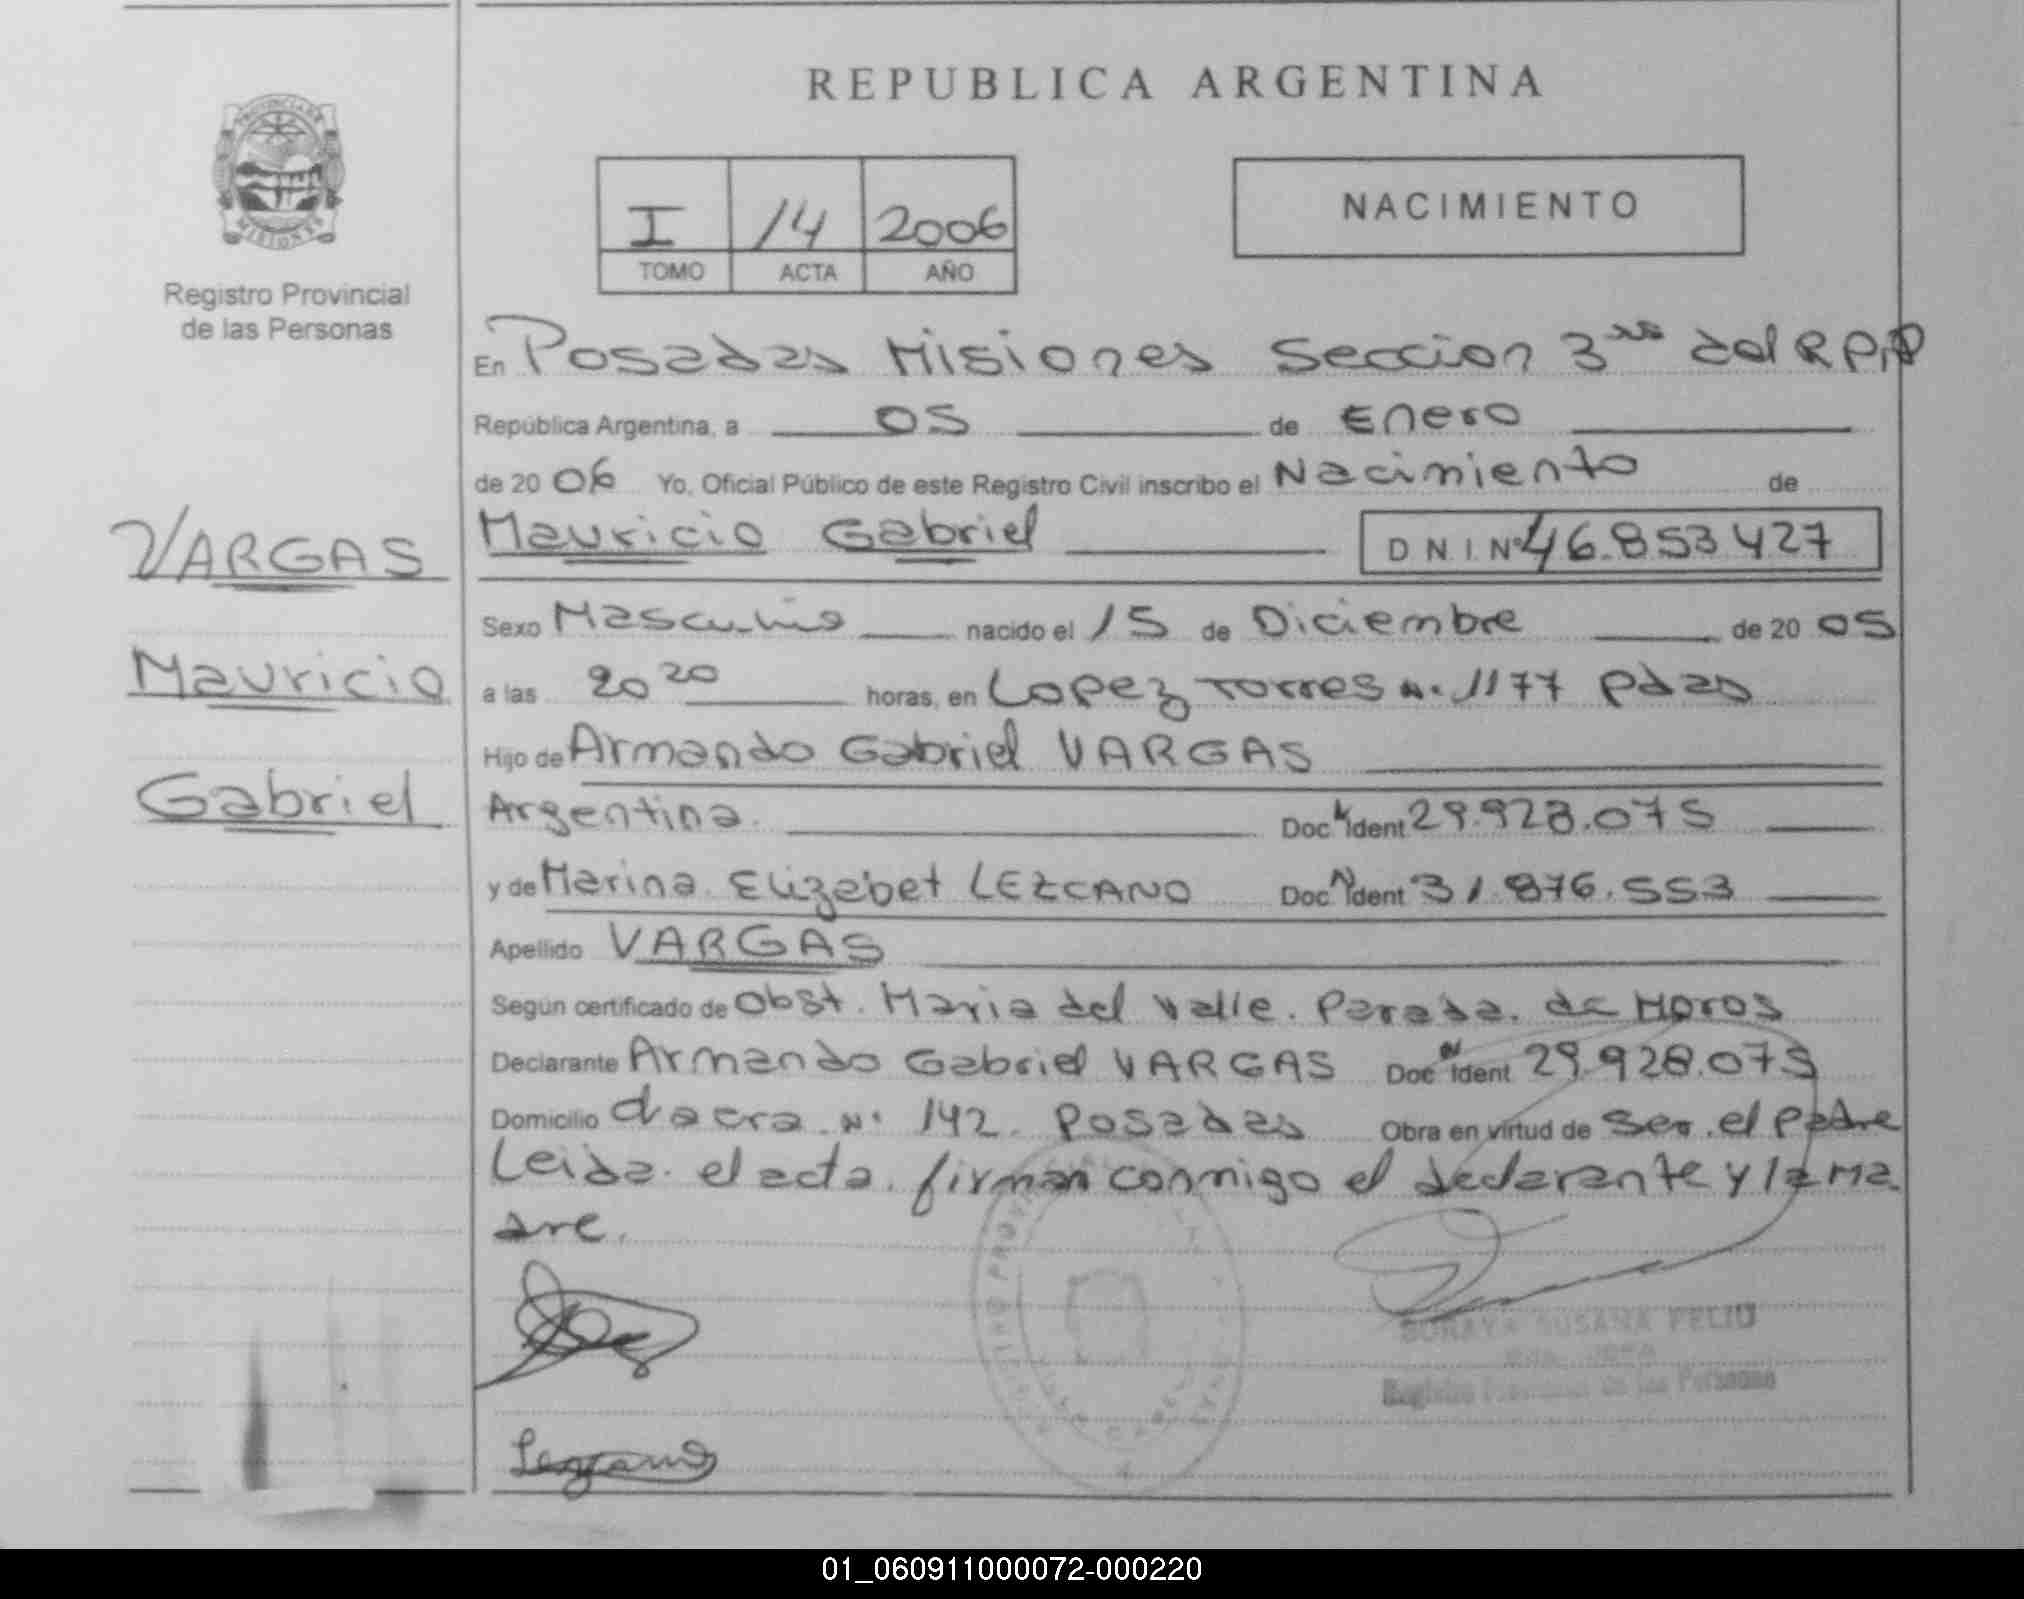 REPUBLICA ARGENTINA
PROVINCIA DE
MISIONES
Registro Provincial
de las Personas
I 14 2006
TOMO ACTA AÑO
NACIMIENTO
En Posadas Misiones Seccion 3ra del R.P.P
República Argentina, a 05 de Enero
de 20 06 Yo, Oficial Público de este Registro Civil inscribo el Nacimiento de
Mauricio Gabriel D N I Nº 46.853.427
VARGAS
Mauricio
Gabriel
Sexo Masculino nacido el 15 de Diciembre de 20 05
a las 20 20 horas, en Lopez Torres Nº 1177 Pdas
Hijo de Armando Gabriel VARGAS
Argentina. Doc Ident 29.928.075
y de Marina Elizabet LEZCANO Doc N Ident 31.876.553
Apellido VARGAS
Según certificado de Obst. Maria del Valle. Parada. de Moros
Declarante Armando Gabriel VARGAS Doc N Ident 29.928.075
Domicilio chacra Nº 142 Posadas Obra en virtud de ser el padre
Leida el acta firman conmigo el declarante y la ma
dre.
SORAYA SUSANA FELIU
Registro Provincial de las Personas
Lezcano
01_060911000072-000220